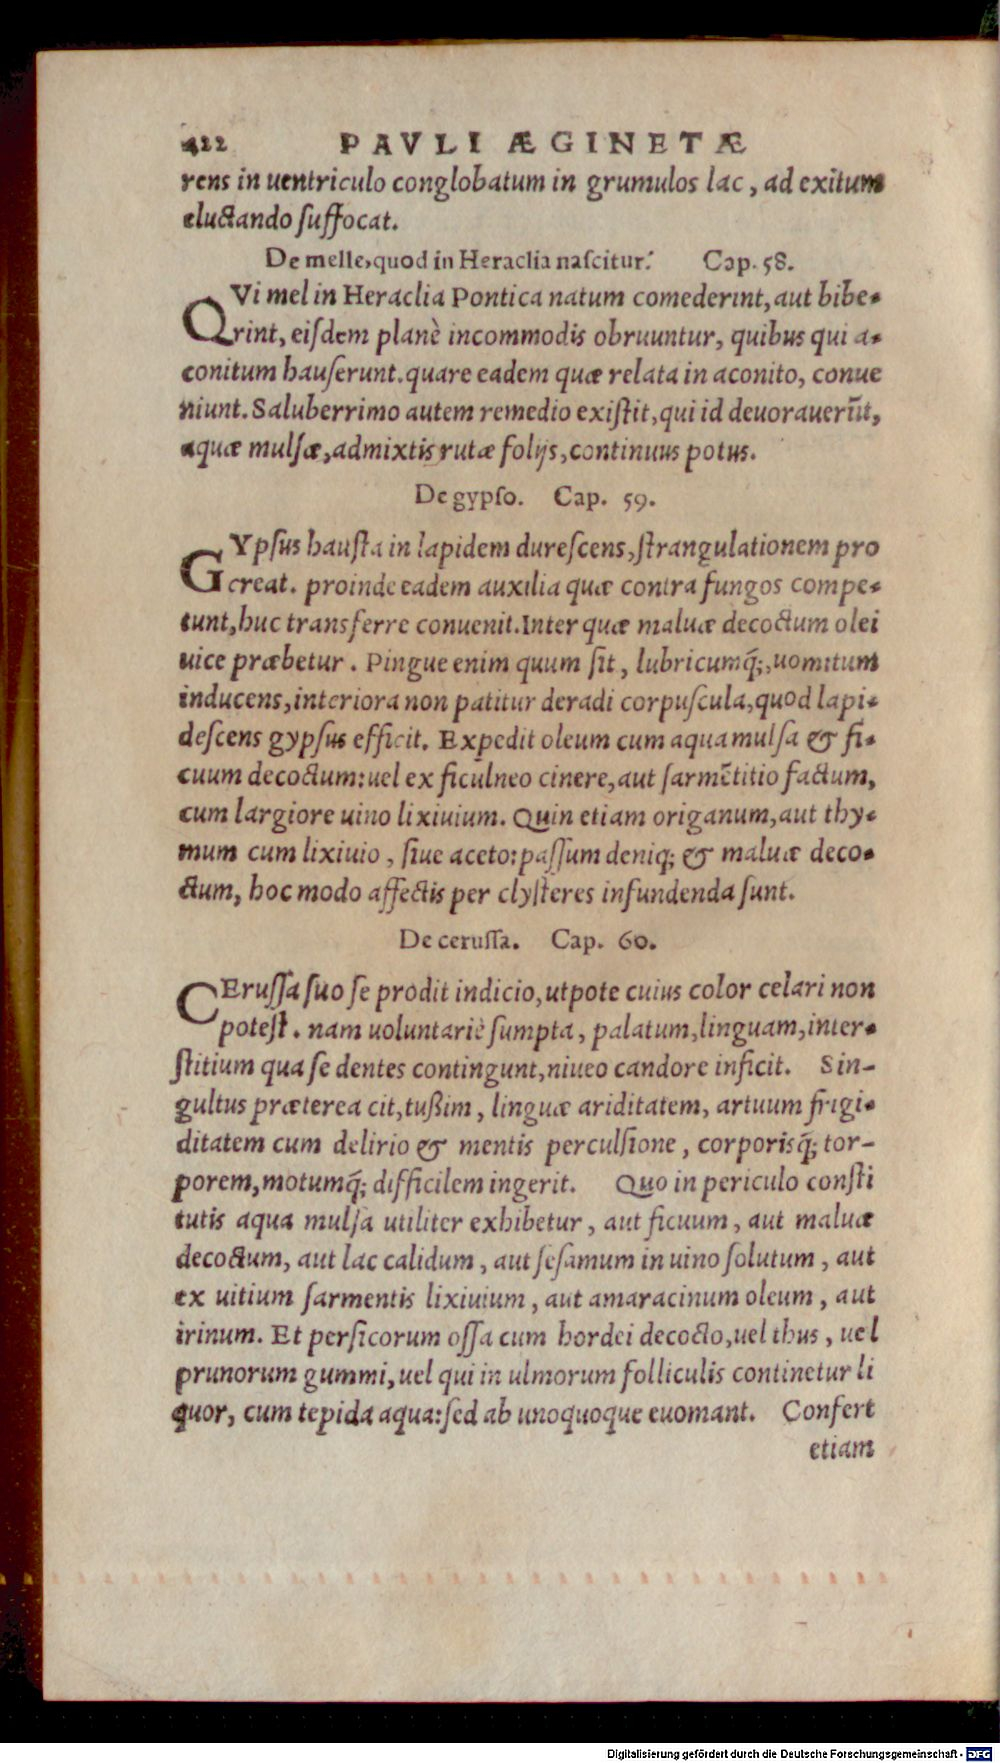 422 PAVLI ÆGINETÆ
rens in uentriculo conglobatum in grumulos lac, ad exitum
eluctando ſuffocat.
De melle, quod in Heraclia naſcitur. Cap. 58.
QVi mel in Heraclia Pontica natum comederint, aut bibe-
rint, eiſdem planè incommodis obruuntur, quibus qui a-
conitum hauſerunt. quare eadem quæ relata in aconito, conue
niunt. Saluberrimo autem remedio exiſtit, qui id deuorauerūt,
aquæ mulſæ, admixtis rutæ folijs, continuus potus.
De gypſo. Cap. 59.
GYpſus hauſta in lapidem dureſcens, ſtrangulationem pro
creat. proinde eadem auxilia quæ contra fungos compe-
tunt, huc transferre conuenit. Inter quæ maluæ decoctum olei
uice præbetur. Pingue enim quum ſit, lubricumq́;, uomitum
inducens, interiora non patitur deradi corpuſcula, quod lapi-
deſcens gypſus efficit. Expedit oleum cum aqua mulſa & fi-
cuum decoctum: uel ex ficulneo cinere, aut ſarmētitio factum,
cum largiore uino lixiuium. Quin etiam origanum, aut thy-
mum cum lixiuio, ſiue aceto: paſſum deniq; & maluæ deco-
ctum, hoc modo affectis per clyſteres infundenda ſunt.
De ceruſſa. Cap. 60.
CEruſſa ſuo ſe prodit indicio, utpote cuius color celari non
poteſt. nam uoluntariè ſumpta, palatum, linguam, inter-
ſtitium qua ſe dentes contingunt, niueo candore inficit. Sin-
gultus præterea cit, tußim, linguæ ariditatem, artuum frigi-
ditatem cum delirio & mentis perculſione, corporisq́; tor-
porem, motumq́; difficilem ingerit. Quo in periculo conſti
tutis aqua mulſa utiliter exhibetur, aut ficuum, aut maluæ
decoctum, aut lac calidum, aut ſeſamum in uino ſolutum, aut
ex uitium ſarmentis lixiuium, aut amaracinum oleum, aut
irinum. Et perſicorum oſſa cum hordei decocto, uel thus, uel
prunorum gummi, uel qui in ulmorum folliculis continetur li
quor, cum tepida aqua: ſed ab unoquoque euomant. Confert
etiam
Digitalisierung gefördert durch die Deutsche Forschungsgemeinschaft - DFG